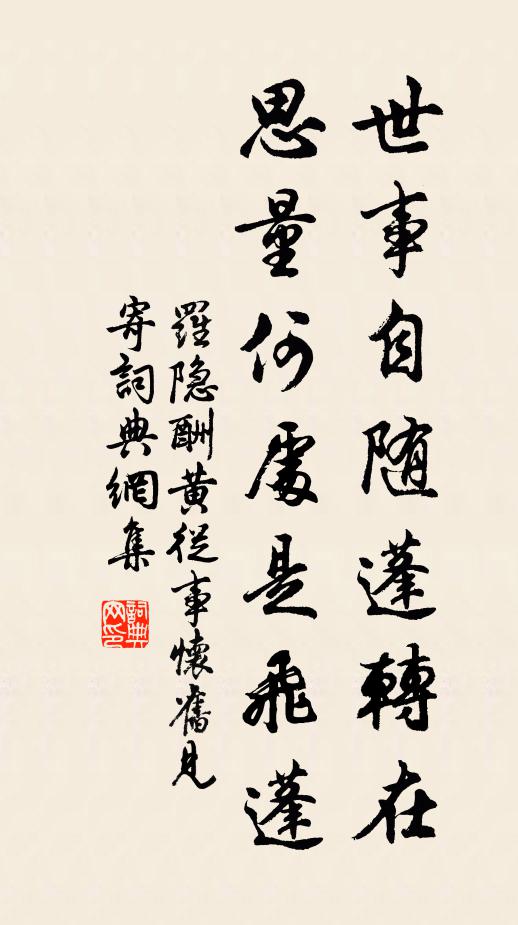 世事自随蓬轉在
思量何處是飛蓬
羅隐酬黄從事懷舊見
寄詞典網集
詞典
网印